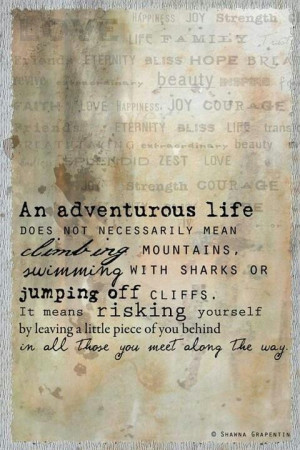 HAPPINESS JOY Strength
LIFE FAMILY
Friends ETERNITY BLISS HOPE
extraordinary beauty
FAITH LOVE HAPPINESS JOY COURAGE
Friends ETERNITY BLISS LIFE
extraordinary beauty
SPLENDID ZEST LOVE
JOY Strength COURAGE
An adventurous life
DOES NOT NECESSARILY MEAN
climbing MOUNTAINS,
swimming WITH SHARKS OR
jumping off CLIFFS.
It means risking yourself
by leaving a little piece of you behind
in all those you meet along the way.
© SHAWNA GRAPENTIN